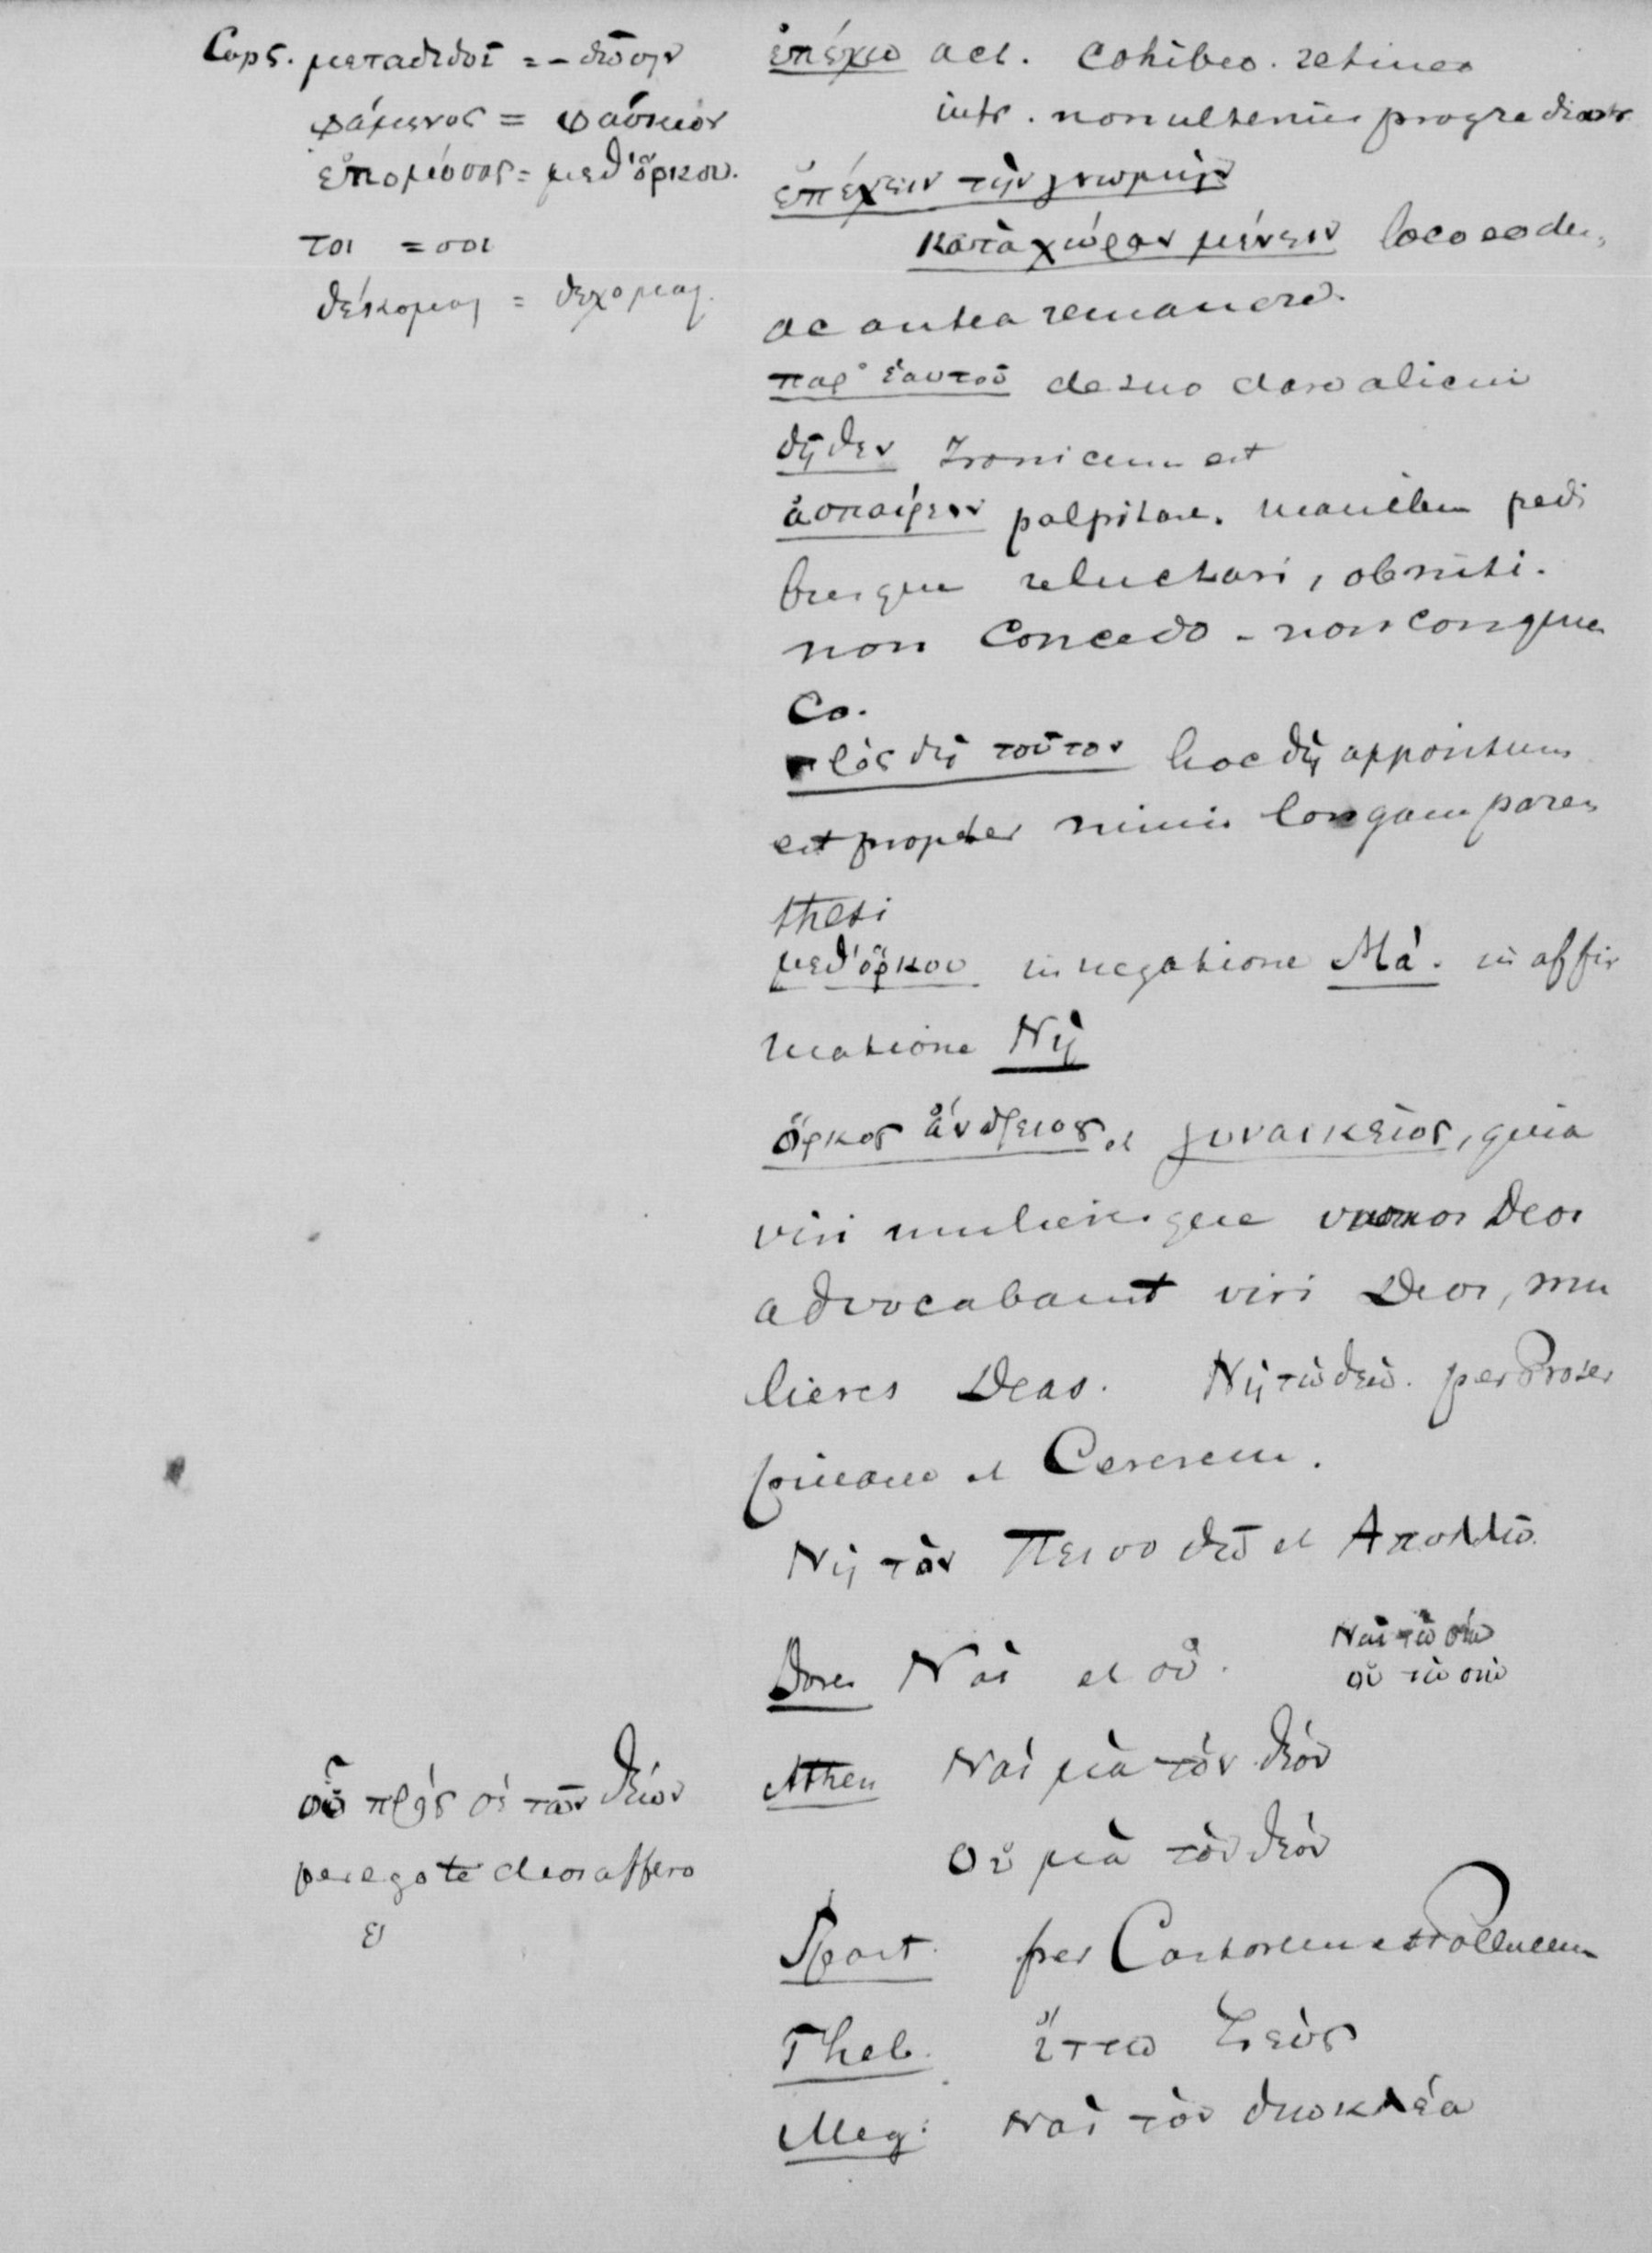 Cap 5. μεταδιδοῖ = -δίδωσιν
φάμενος = φάσκων
ἐπομόσας = μεθ' ὅρκου.
τοι = σοι
δέκομαι = δέχομαι.
ἐπέχω act. cohibeo. retineo
intr. non ulterius progredior
ἐπέχειν τὴν γνώμην
κατὰ χώραν μένειν loco eodem
ac antea remanere.
παρ' ἑαυτοῦ de suo dare alicui
δῆθεν Ironicum est
ἀσπαίρειν palpitare. manibus pedi
busque reluctari, obniti.
non concedo - non conquies
co.
πρὸς δὴ τοῦτον hoc δὴ appositum
est propter nimis longam paren
thesi
μεθ' ὅρκου in negatione Μά. in affir
matione Νὴ
ὅρκος ἀνδρεῖος et γυναικεῖος, quia
viri mulieresque Deos
advocabant viri Deos, mu
lieres Deas. Νὴ τὼ θεὼ. per Proser
pinam et Cererem.
Νὴ τὸν Ποσειδῶ et Απολλω.
Dores Ναὶ et οὐ.
Ναὶ τὼ σιὼ
οὐ τὼ σιὼ
Athen Ναὶ μὰ τὸν θεόν
Οὐ μὰ τὸν θεόν
οὔ πρός σὲ τῶν θεῶν
per ego te deos affero
Spart. per Castorem et Pollucem
Theb. ἴττω Ζεὺς
Meg. Ναὶ τὸν Διοκλέα